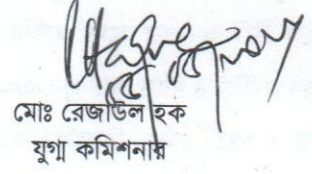 মোঃ রেজাউল হক
যুগ্ম কমিশনার